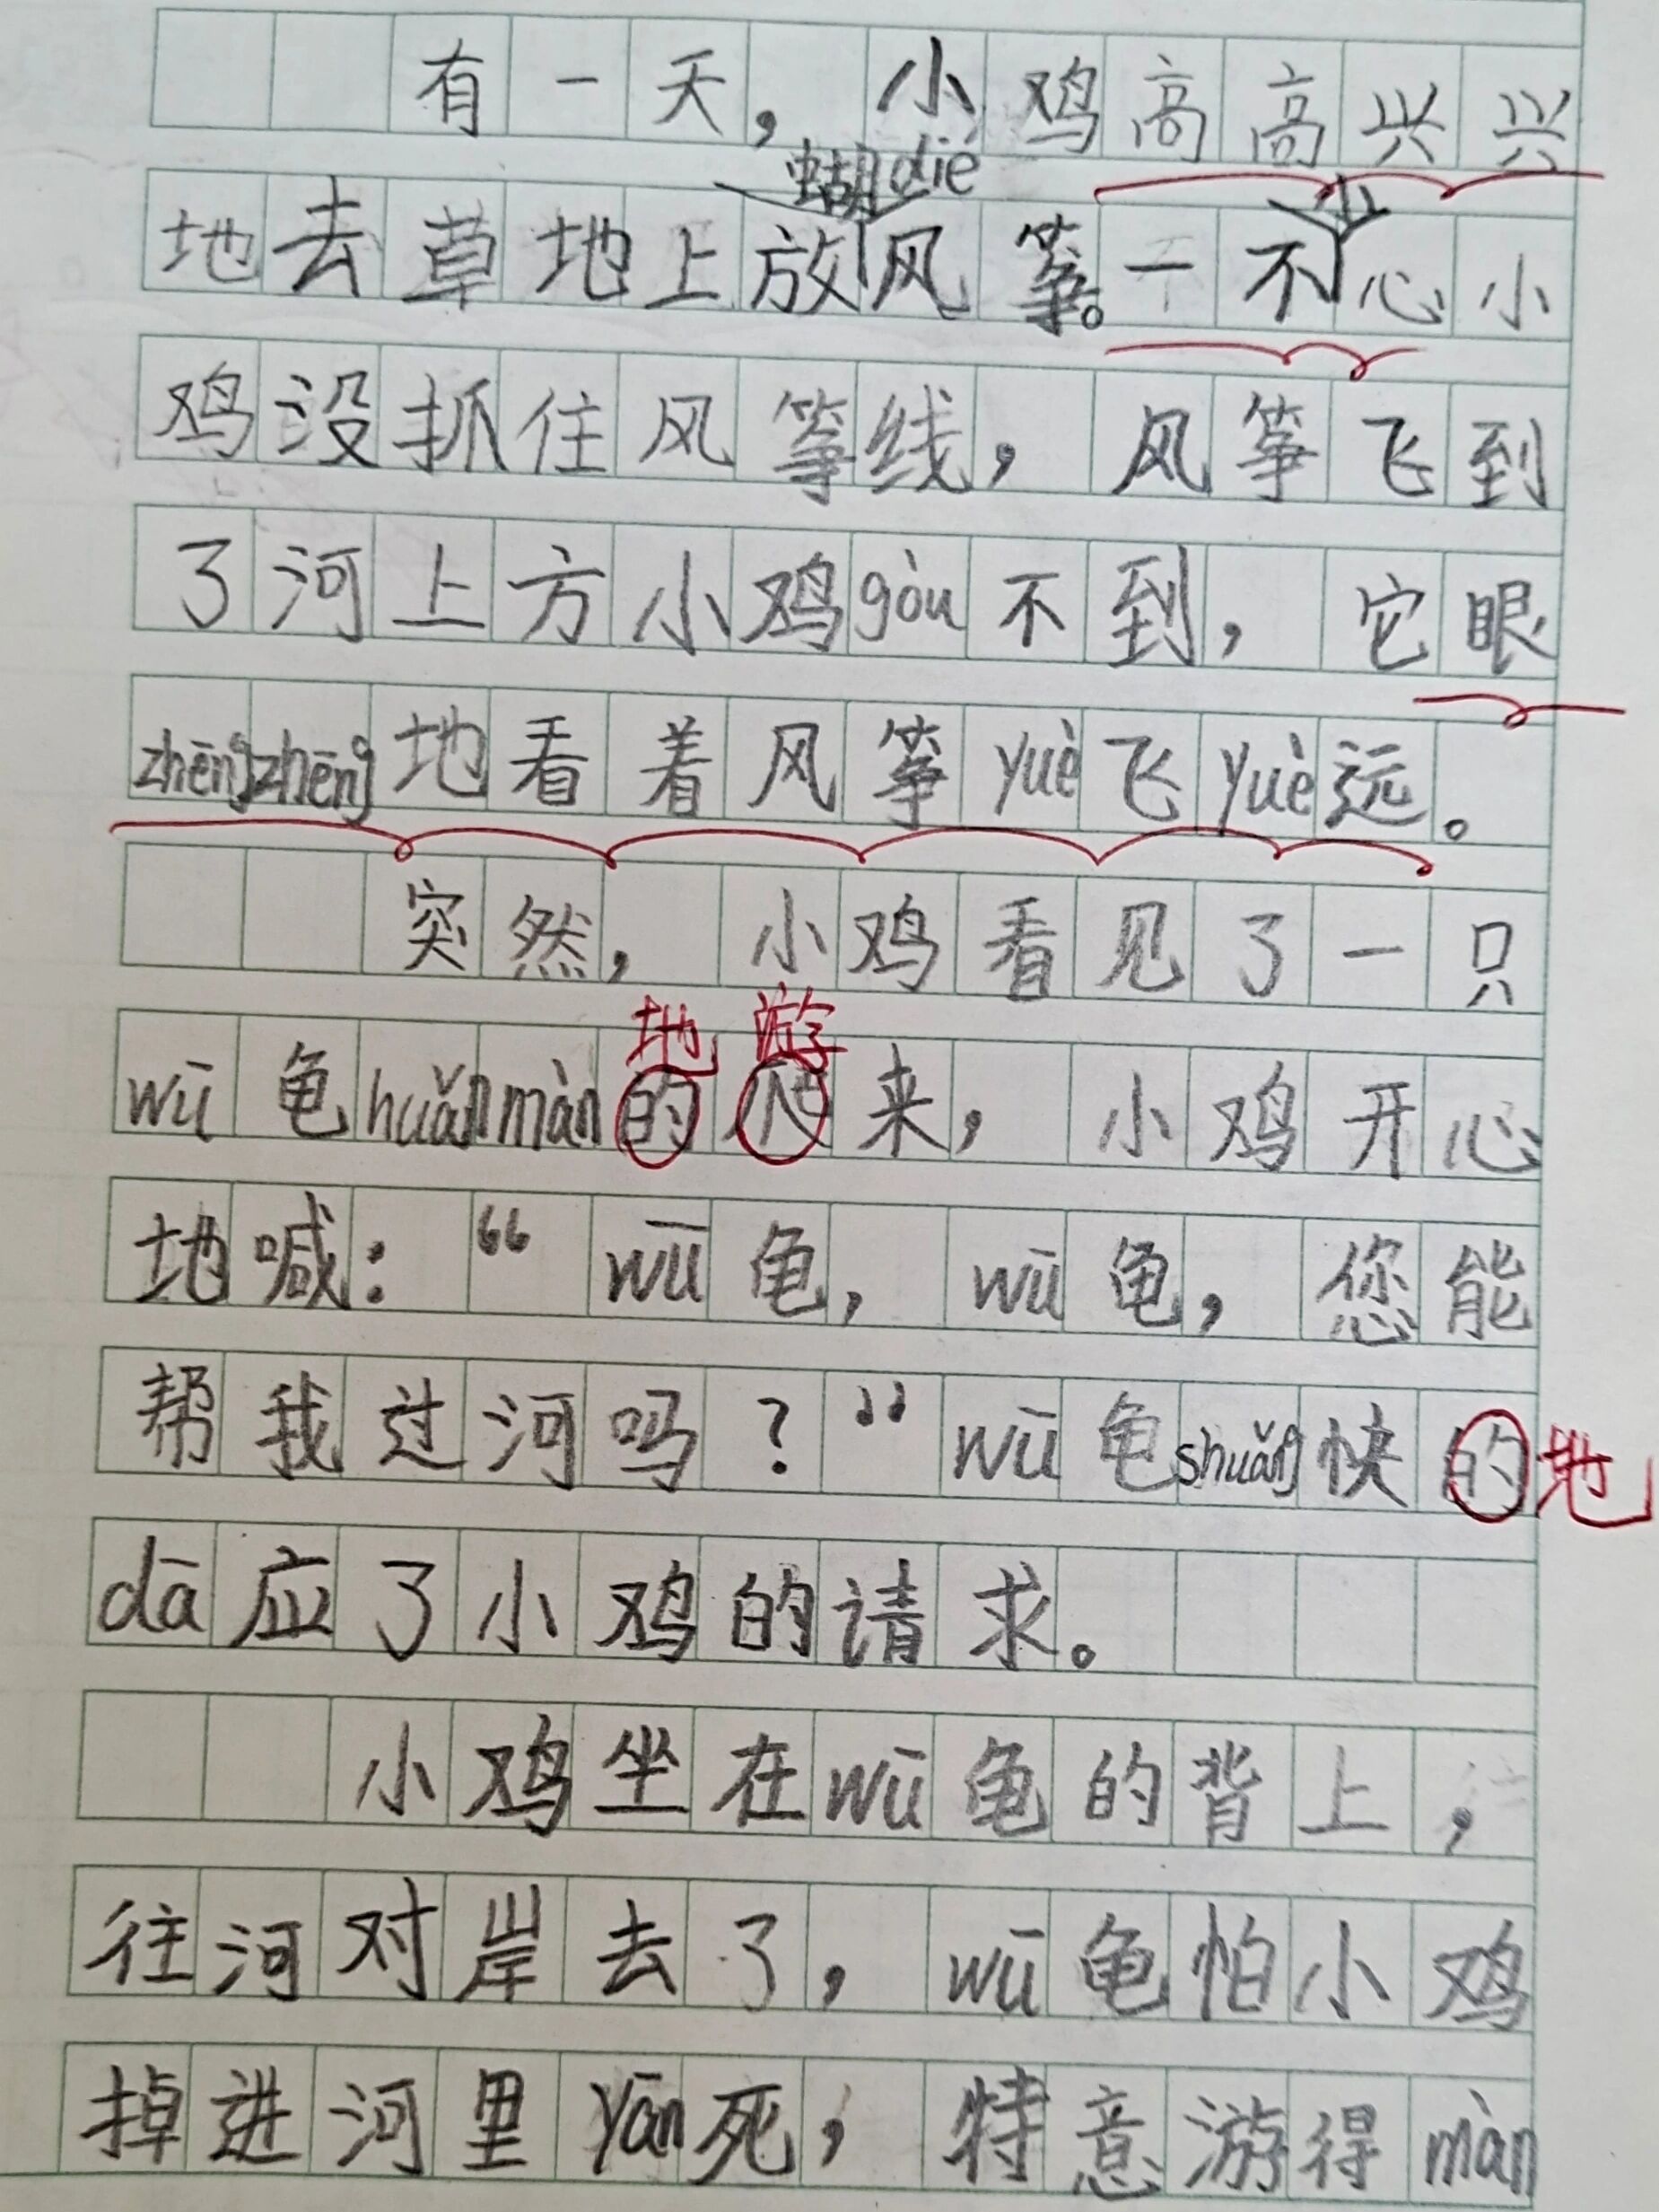 有一天，小鸡高高兴兴
蝴dié
地去草地上放风筝。一不小心小
鸡没抓住风筝线，风筝飞到
了河上方小鸡gòu不到，它眼
zhēngzhēng地看着风筝yuè飞yuè远。
突然，小鸡看见了一只
地 游
wū龟huǎnmàn的爬来，小鸡开心
地喊：“wū龟，wū龟，您能
帮我过河吗？”wū龟shuǎng快的地
dā应了小鸡的请求。
小鸡坐在wū龟的背上，
往河对岸去了，wū龟怕小鸡
掉进河里yān死，特意游得màn